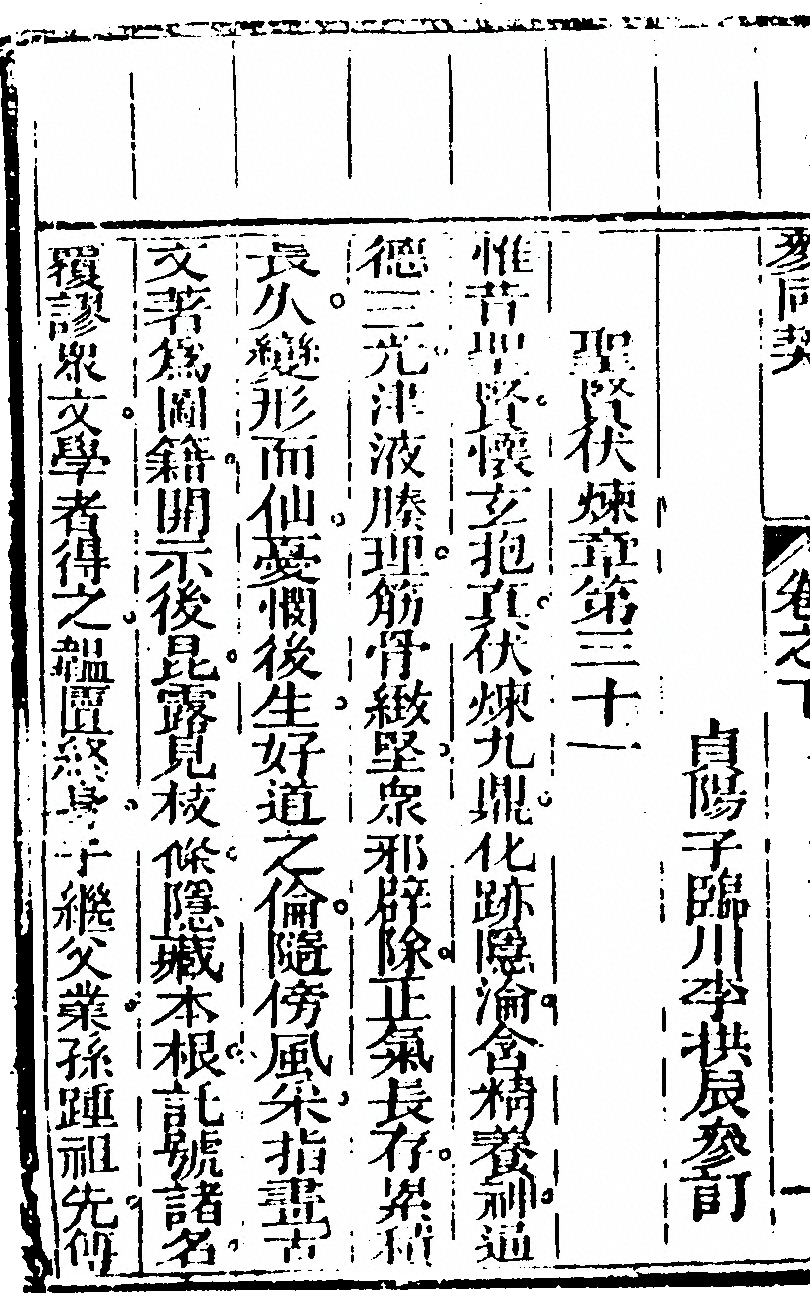 參同契 卷之下 一
貞陽子臨川李拱辰參訂
聖賢伏煉章第三十一
惟昔聖賢。懷玄抱真。伏煉九鼎。化跡隱淪。含精養神。通
德三光。津液腠理。筋骨緻堅。衆邪辟除。正氣長存。累積
長久。變形而仙。憂憫後生。好道之倫。隨傍風采。指畫古
文。著為圖籍。開示後昆。露見枝條。隱藏本根。託號諸名。
覆謬衆文。學者得之。韞匵終身。子繼父業。孫踵祖先。傳